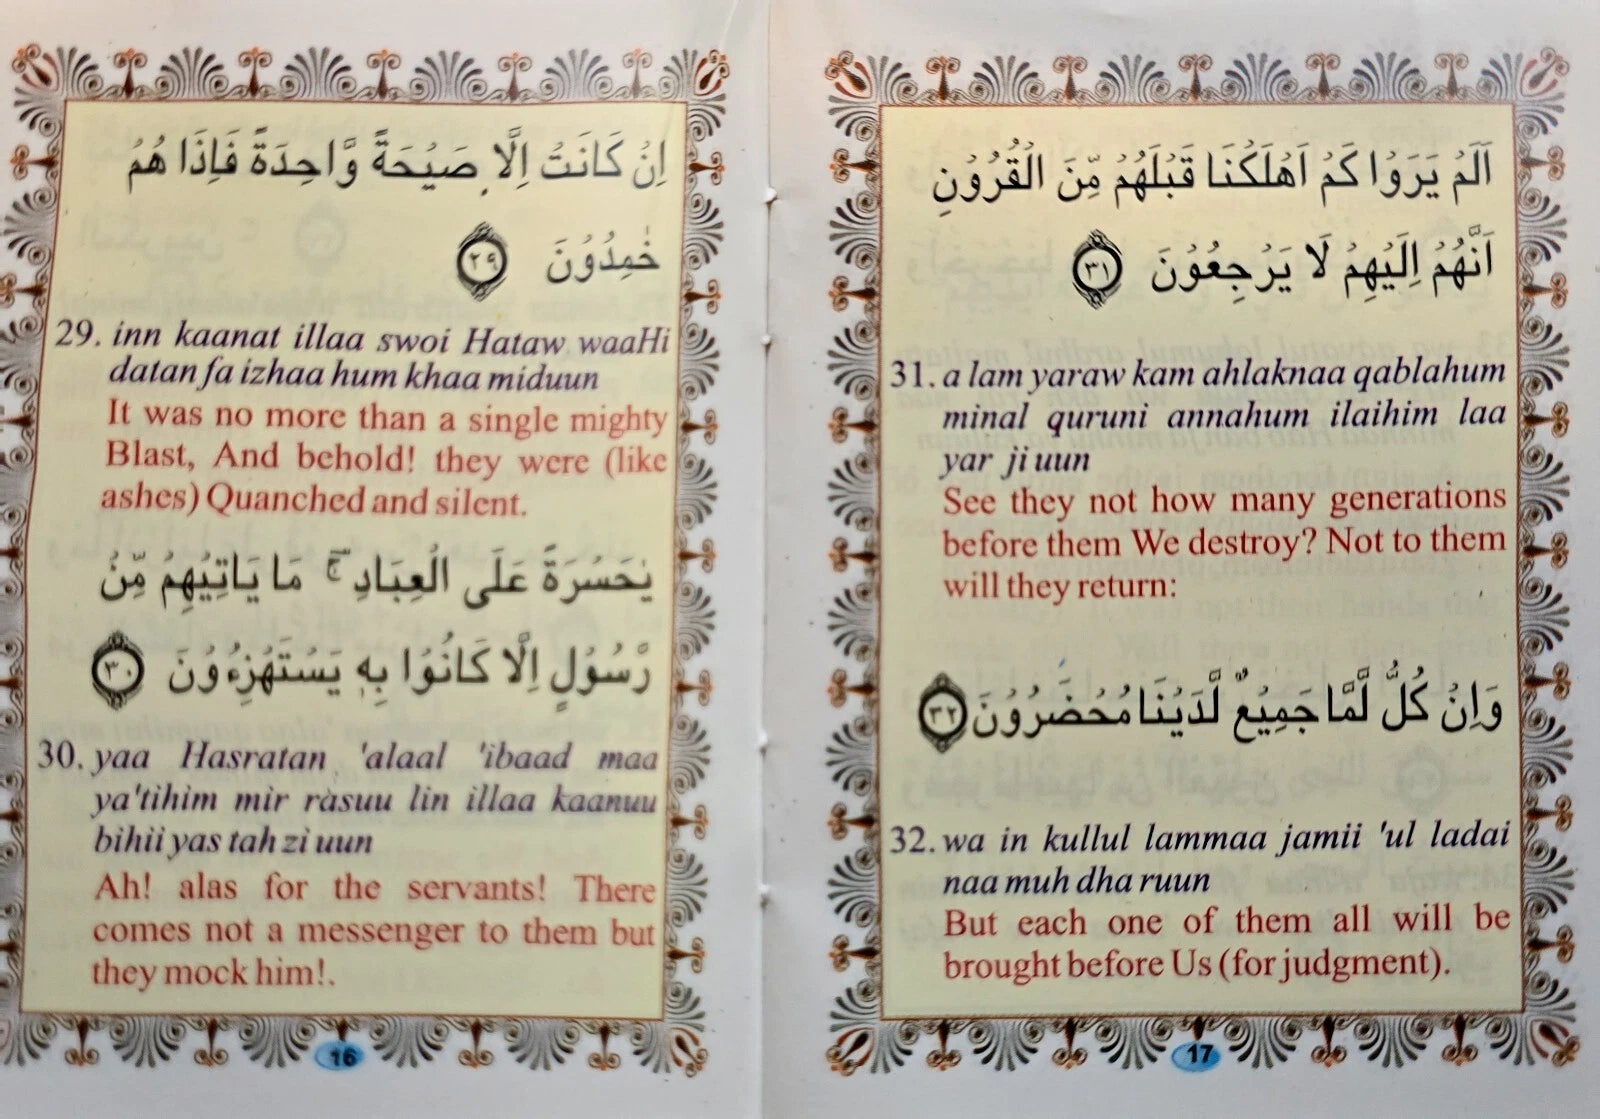 اِنۡ كَانَتۡ اِلَّا صَيۡحَةً وَّاحِدَةً فَاِذَا هُمۡ
خٰمِدُوۡنَ ﴿٢٩﴾
29. inn kaanat illaa swoi Hataw waaHi
datan fa izhaa hum khaa miduun
It was no more than a single mighty
Blast, And behold! they were (like
ashes) Quanched and silent.
يٰحَسۡرَةً عَلَى الۡعِبَادِ ۚ مَا يَاتِيۡهِمۡ مِّنۡ
رَّسُوۡلٍ اِلَّا كَانُوۡا بِهٖ يَسۡتَهۡزِءُوۡنَ ﴿٣٠﴾
30. yaa Hasratan 'alaal 'ibaad maa
ya'tihim mir rasuu lin illaa kaanuu
bihii yas tah zi uun
Ah! alas for the servants! There
comes not a messenger to them but
they mock him!.
16
اَلَمۡ يَرَوۡا كَمۡ اَهۡلَكۡنَا قَبۡلَهُمۡ مِّنَ الۡقُرُوۡنِ
اَنَّهُمۡ اِلَيۡهِمۡ لَا يَرۡجِعُوۡنَ ﴿٣١﴾
31. a lam yaraw kam ahlaknaa qablahum
minal quruni annahum ilaihim laa
yar ji uun
See they not how many generations
before them We destroy? Not to them
will they return:
وَاِنۡ كُلٌّ لَّمَّا جَمِيۡعٌ لَّدَيۡنَا مُحۡضَرُوۡنَ ﴿٣٢﴾
32. wa in kullul lammaa jamii 'ul ladai
naa muh dha ruun
But each one of them all will be
brought before Us (for judgment).
17